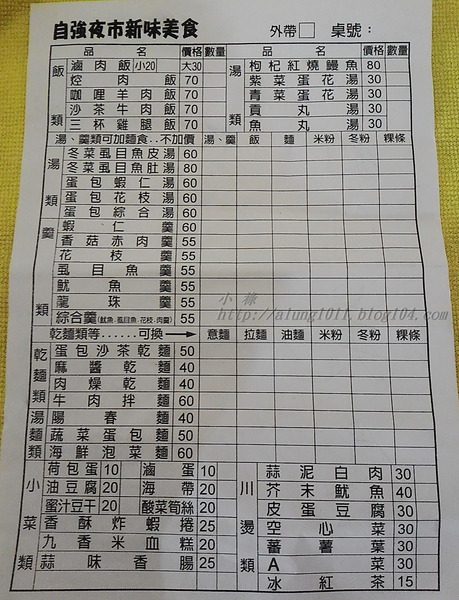 自強夜市新味美食 外帶□ 桌號：
品名 價格 數量 品名 價格 數量
飯類
滷肉飯 小20 大30
焢肉飯 70
咖哩羊肉飯 70
沙茶牛肉飯 70
三杯雞腿飯 70
湯類
枸杞紅燒鰻魚 80
紫菜蛋花湯 30
青菜蛋花湯 30
貢丸湯 30
魚丸湯 30
湯、羹類可加麵食..不加價 湯、羹 飯 麵 米粉 冬粉 粿條
湯類
冬菜虱目魚皮湯 60
冬菜虱目魚肚湯 80
蛋包蝦仁湯 60
蛋包花枝湯 60
蛋包綜合湯 60
羹類
蝦仁羹 60
香菇赤肉羹 55
花枝羹 55
虱目魚羹 55
魷魚羹 55
龍珠羹 55
綜合羹(魷魚.虱目魚.花枝.肉羹) 55
乾麵類等......可換→ 意麵 拉麵 油麵 米粉 冬粉 粿條
乾麵類
蛋包沙茶乾麵 50
麻醬乾麵 40
肉燥乾麵 40
牛肉拌麵 60
湯麵類
陽春麵 40
蔬菜蛋包麵 50
海鮮泡菜麵 60
小菜類
荷包蛋 10 滷蛋 10
油豆腐 20 海帶 20
蜜汁豆干 20 酸菜筍絲 20
香酥炸蝦捲 25
九香米血糕 20
蒜味香腸 25
川燙類
蒜泥白肉 30
芥末魷魚 40
皮蛋豆腐 30
空心菜 30
蕃薯葉 30
A菜 30
冰紅茶 15
小祿
http://alung1011.blog104.com